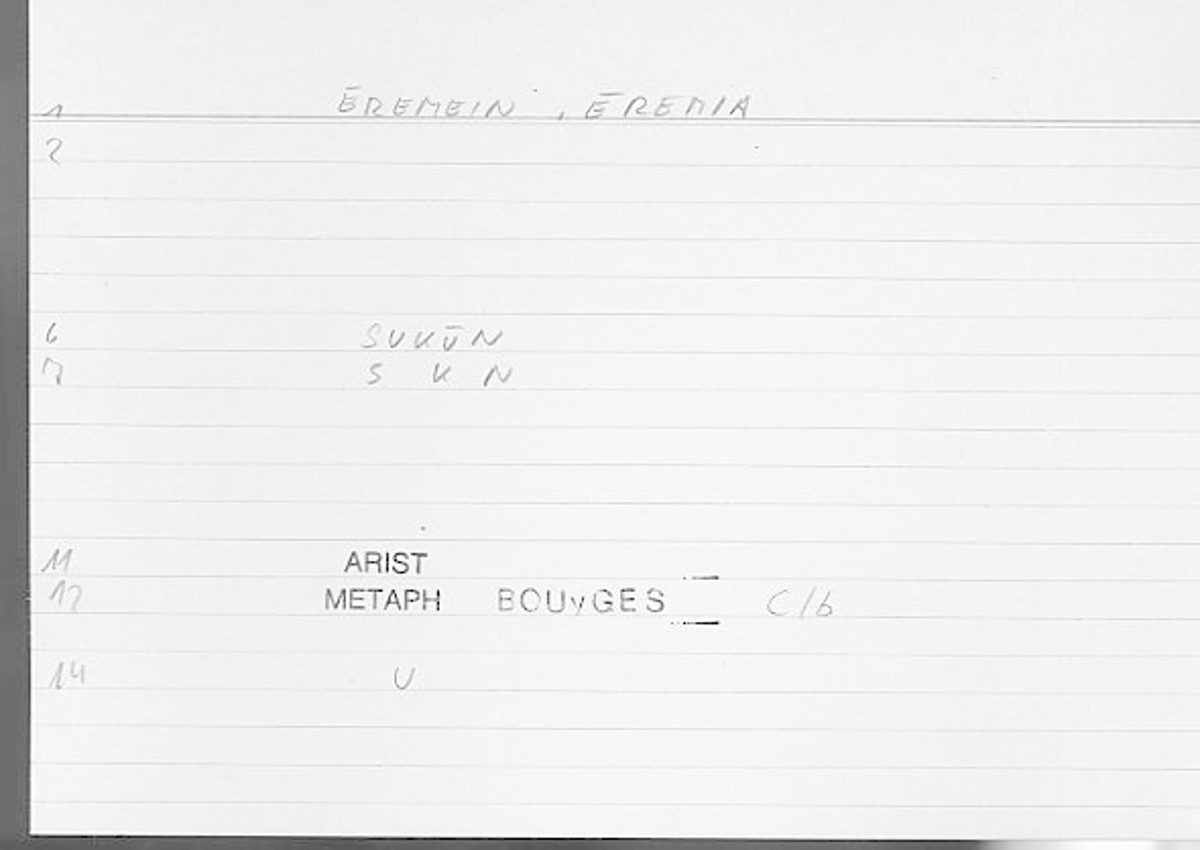 1 ĒREMEIN , ĒREMIA
2
6 SUKŪN
7 S K N
11 ARIST
12 METAPH BOUyGES C/b
14 U